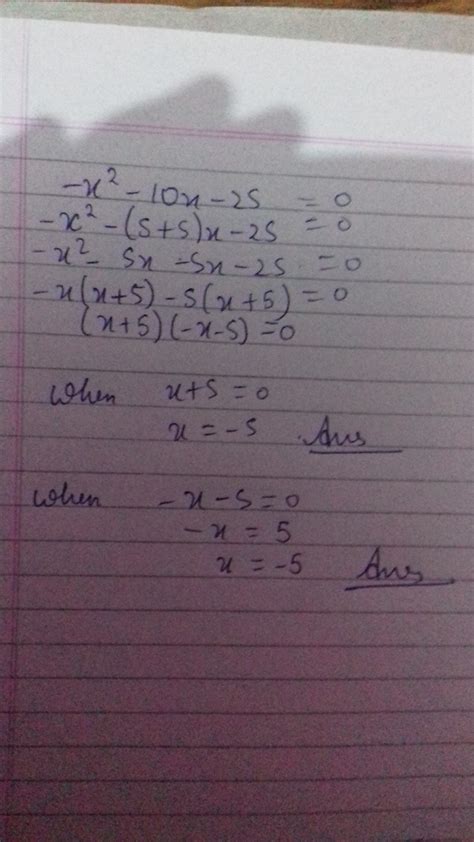 -x² - 10x - 25 = 0
-x² - (5+5)x - 25 = 0
-x² - 5x - 5x - 25 = 0
-x(x+5) - 5(x+5) = 0
(x+5)(-x-5) = 0
when x+5 = 0
x = -5 Ans
when -x - 5 = 0
-x = 5
x = -5 Ans